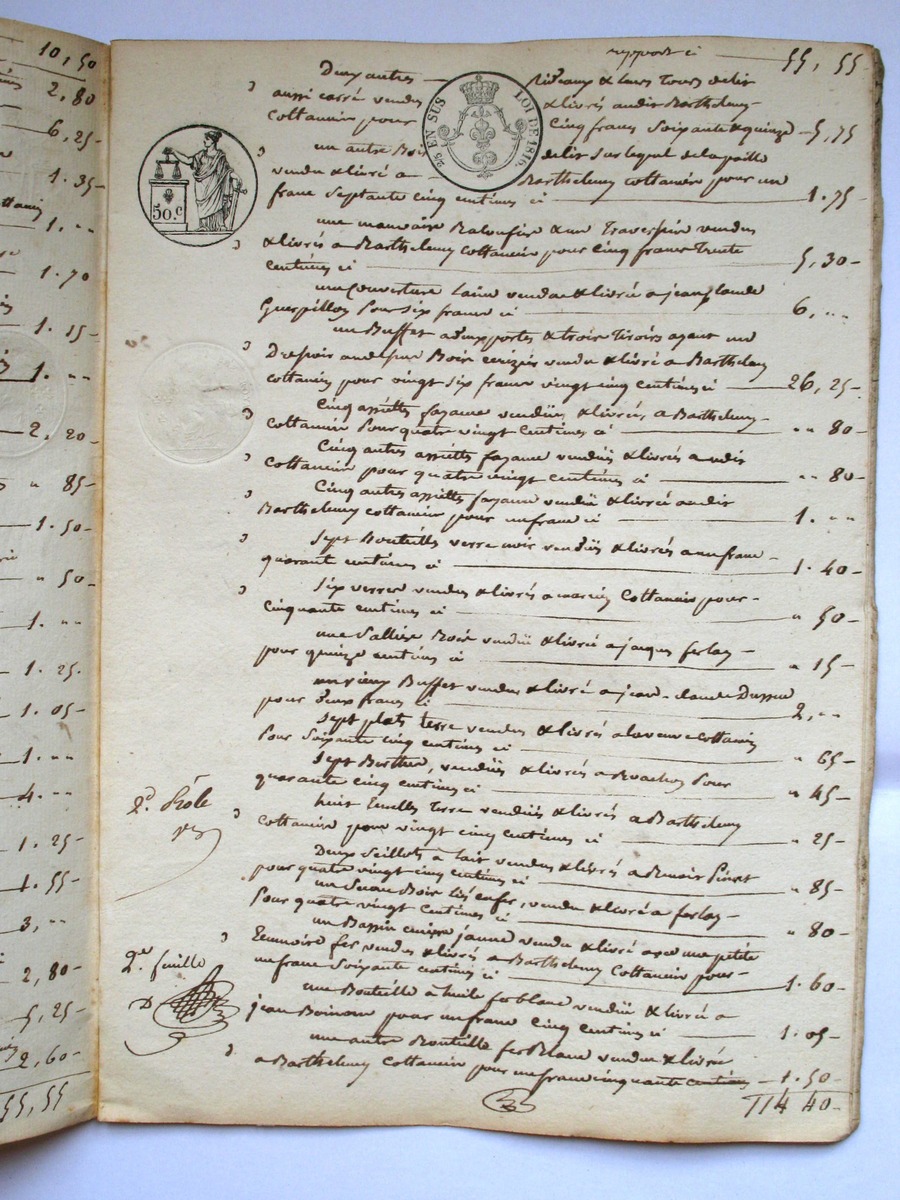 10,50
2,80
6,25-
1.35-
1. "
1.70
1.15-
1. "
2,20-
" 85-
1.50-
" 50-
1. "
1.25-
1.05-
1. "
4. "
1.25-
1.55-
3, "
2,80-
5,25-
2,60-
55,55
report ci 55,55
Deux autres Rideaux & leurs Tours de lit
aussi carré vendus & livrés audit Barthelemy
Cottancin pour Cinq francs Soixante & quinze 5,75
25 EN SUS LOI DE 1816
50.c
un autre Bois de lit
vendu & livré a Barthelemy Cottancin pour un
franc Septante cinq centimes ci 1.75
une mauvaise & un Traversier vendus
& livrés a Barthelemy Cottancin pour Cinq francs Trente
centimes ci 5,30-
une Couverture Laine vendue & livrée a jean claude
Guerpillon pour Six francs ci 6, "
un Buffet a deux portes & trois Tiroirs ayant un
Dressoir au dessus Bois cerizier vendu & livré a Barthelemy
Cottancin pour vingt six francs vingt cinq centimes ci 26,25-
Cinq assiettes fayance vendues & livrées, a Barthelemy
Cottancin Pour quatre vingt Centimes ci " 80-
Cinq autres assiettes fayance vendues & livrées audit
Cottancin pour quatre vingt centimes ci " 80-
Cinq autres assiettes fayance vendue & livrée audit
Barthelemy Cottancin pour un franc ci 1. "
Sept Bouteilles verre noir vendües & livrées a un franc
quarante centimes ci 1.40-
Six verres vendus & livrés a Cottancin pour
Cinquante centimes ci " 50
une Salliere Bois vendüe & livrée a jacques ferlay
pour quinze centimes ci " 15-
un vieux Buffet vendu & livré a jean-claude
pour Deux francs ci 2, "
Sept plats terre vendus & livrés a la veuve Cottancin
Pour Soixante cinq centimes ci " 65-
Sept vendües & livrées a Pour
quarante cinq centimes ci " 45-
huit Ecuelles Terre vendües & livrées a Barthelemy
Cottancin pour vingt cinq centimes ci " 25-
Deux Seillots a lait vendus & livrés a Benoit
pour quatre vingt cinq centimes ci " 85-
un Seau Bois Lié en fer, vendu & livré a ferlay
Pour quatre vingt Centimes ci " 80-
un Bassin cuivre jaune vendu & livré avec une petite
Ecumoire fer vendus & livrés a Barthelemy Cottancin pour
un franc Soixante centimes ci 1.60-
une Bouteille à huile fer blanc vendüe & livrée a
jean pour un franc Cinq centimes ci 1.05-
une autre Bouteille fer Blanc vendue & livrée
a Barthelemy Cottancin pour un franc cinquante centimes 1.50-
114 40-
2.d Rôle
2.e feuille